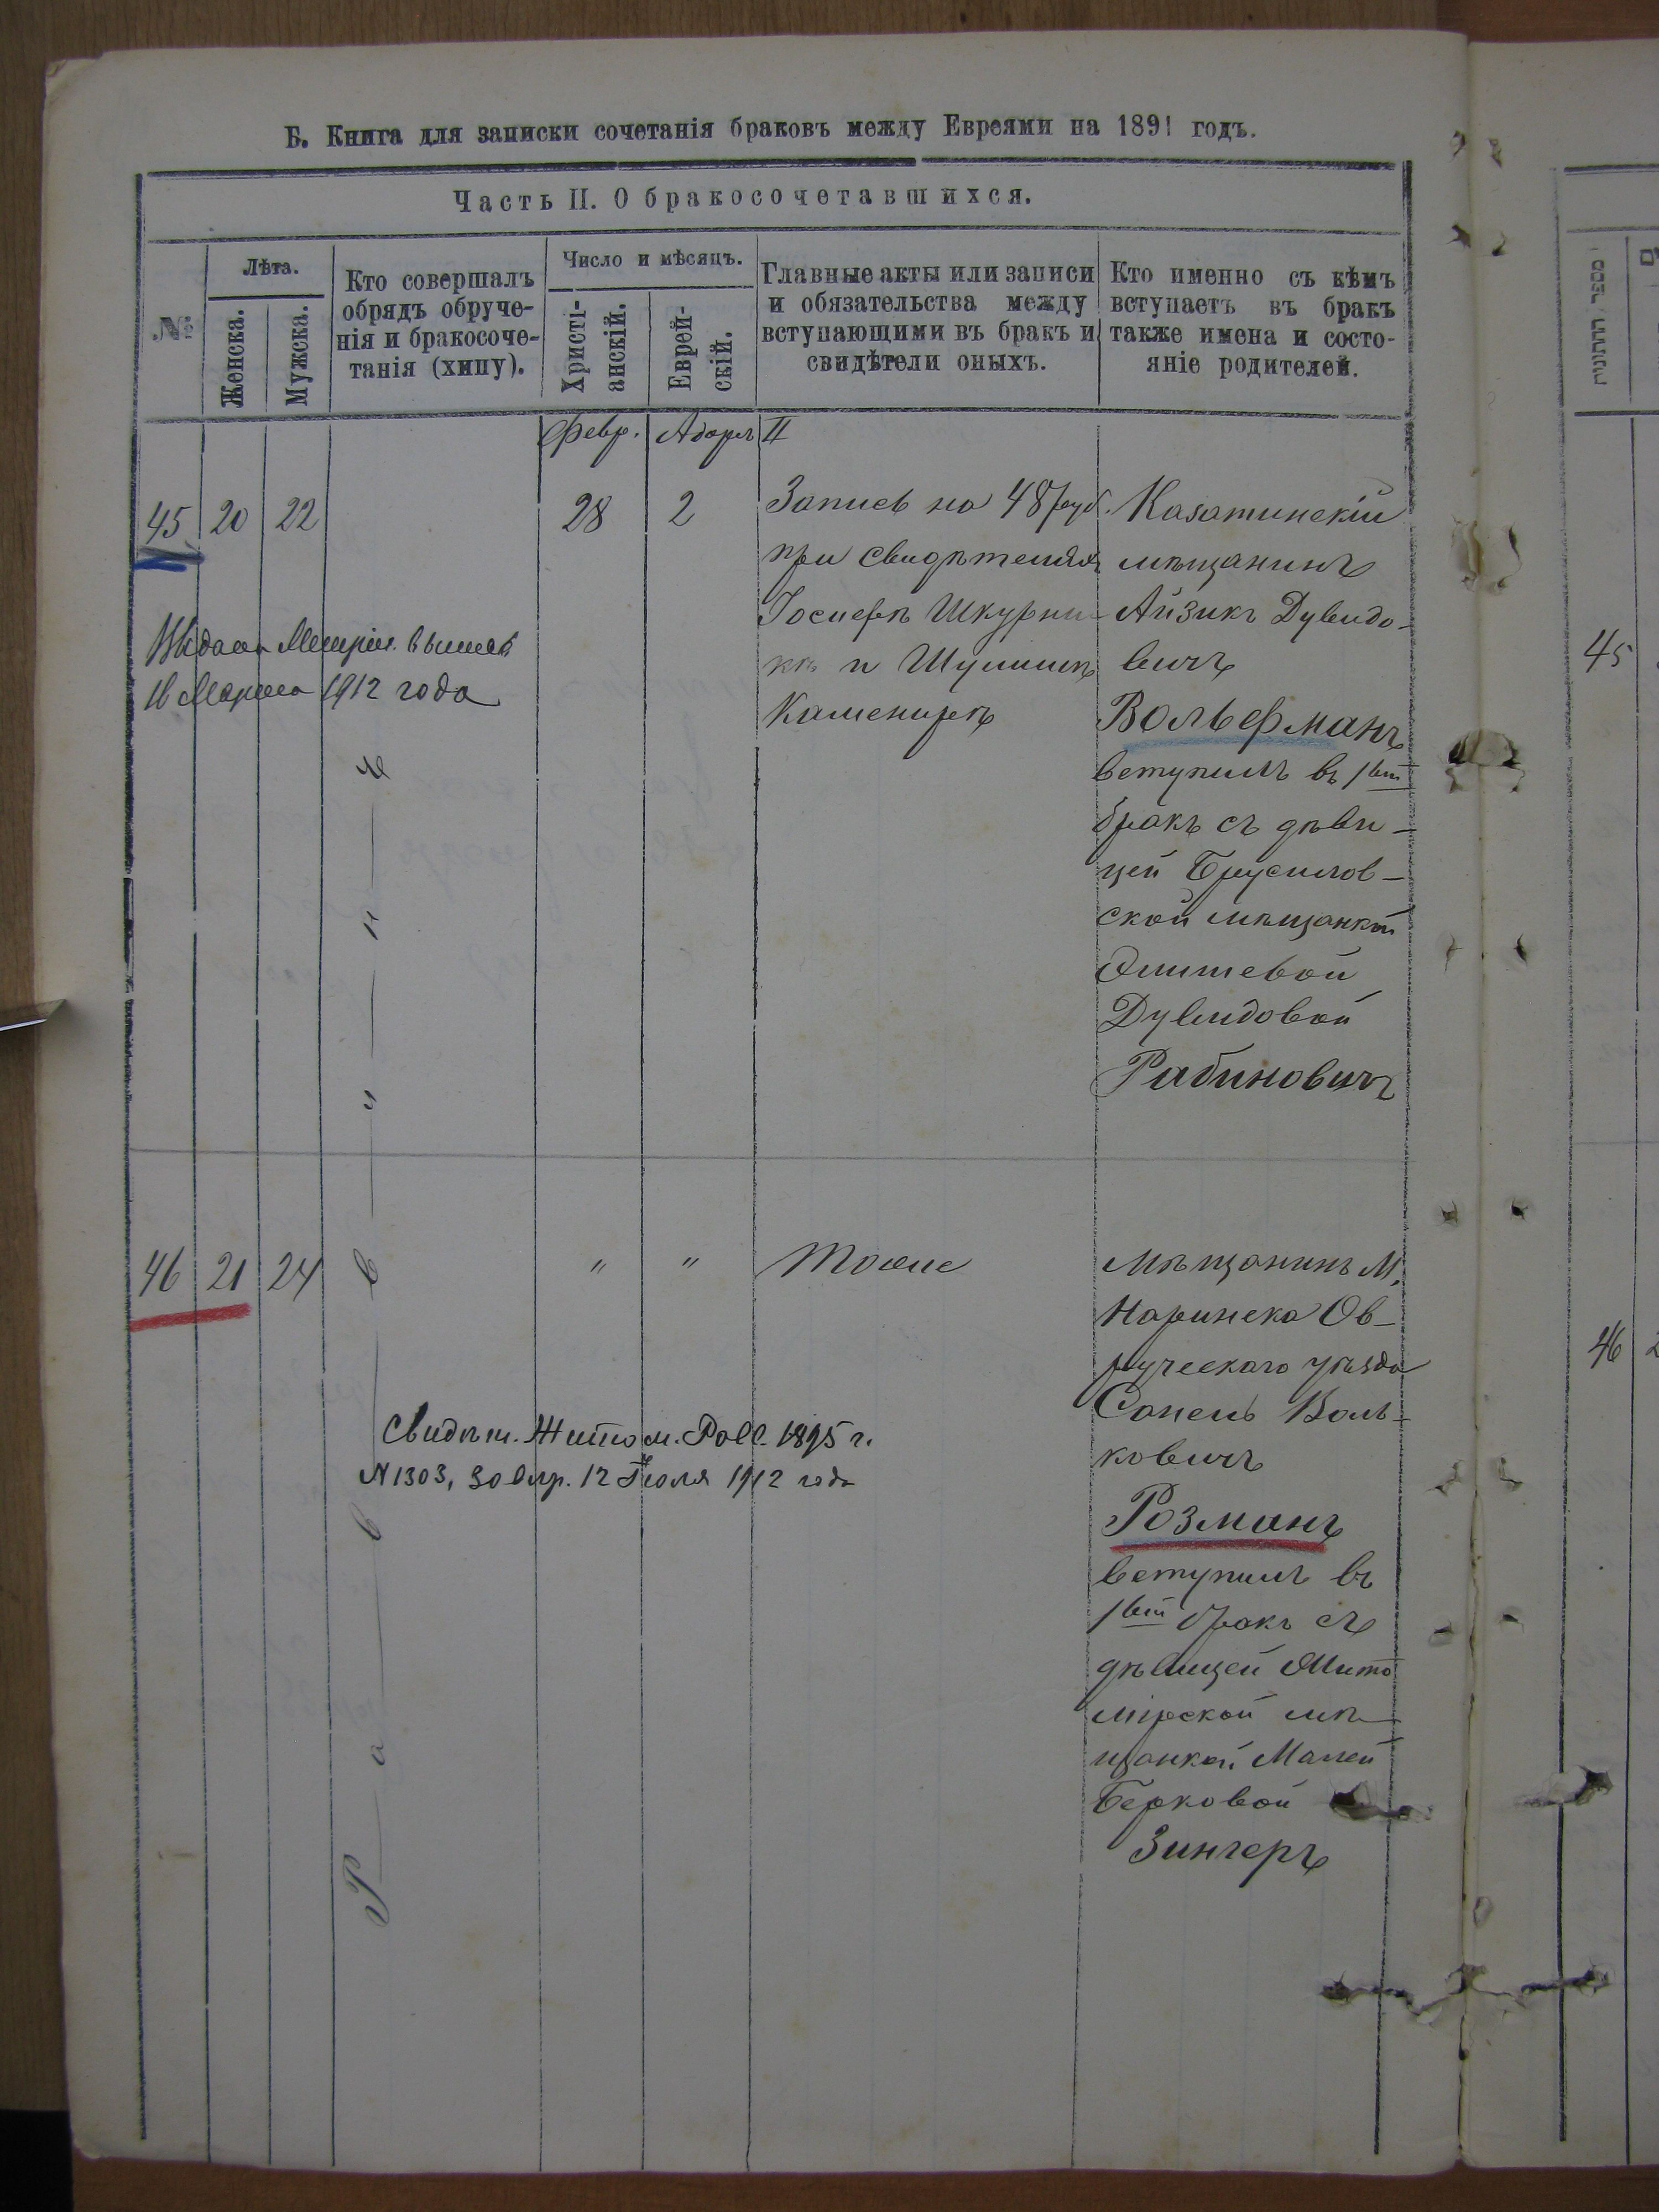 Б. Книга для записки сочетанія браковъ между Евреями на 1891 годъ.
Часть II. О бракосочетавшихся.
№
Лѣта.
Женска.
Мужска.
Кто совершалъ
обрядъ обруче-
нія и бракосоче-
танія (хипу).
Число и мѣсяцъ.
Христі-
анскій.
Еврей-
скій.
Главные акты или записи
и обязательства между
вступающими въ бракъ и
свидѣтели оныхъ.
Кто именно съ кѣмъ
вступаетъ въ бракъ
также имена и состо-
яніе родителей.
Февр. Адаръ II
45 20 22
28 2
Запись на 48 руб.
при свидѣтеляхъ
Іосифѣ Шкурни-
кѣ и Шулимѣ
Каменирѣ
Казатинскій
мѣщанинъ
Айзикъ Дувидо-
вичъ
Вольфманъ
вступилъ въ 1вый
бракъ съ дѣви-
цей Брусилов-
ской мѣщанкой
Дувидовой
Рабиновичъ
Выдана Метрич. выпись
16 Марта 1912 года
Раввинъ
46 21 24
" "
Тоже
Мѣщанинъ м.
Наринска Ов-
ручскаго уѣзда
Воль-
ковичъ
Розманъ
вступилъ въ
1вый бракъ съ
дѣвицей Жито
мірской мѣ-
щанкой Малей
Берковой
Зингеръ
Свидѣт. Житом. 1895 г.
№ 1303, 12 Іюля 1912 года
45
46 2